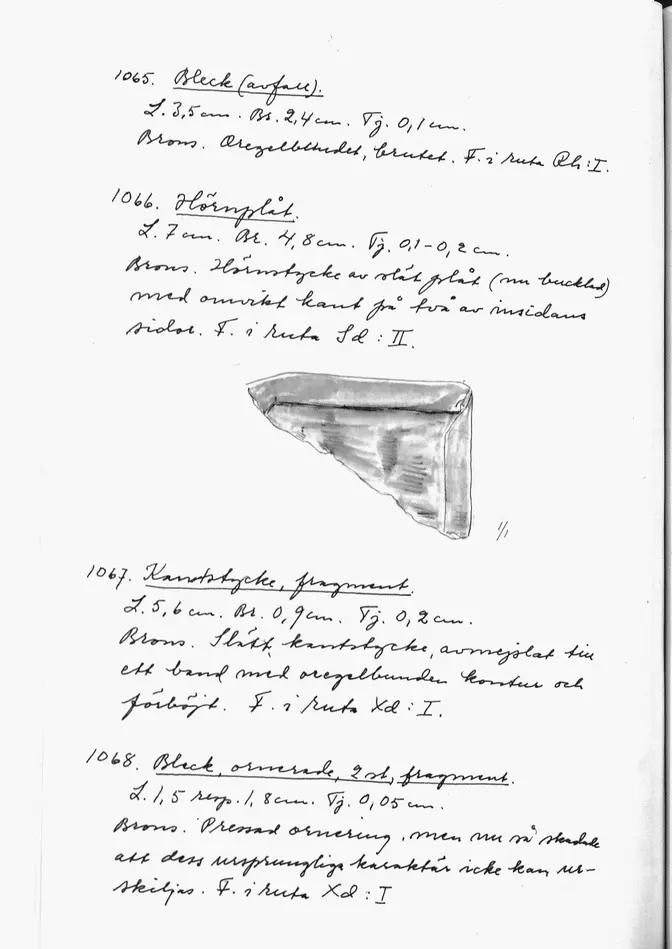 1065. Bleck (avfall).
L. 3,5 cm. Br. 2,4 cm. Tj. 0,1 cm.
Brons. Oregelbundet, brutet. F. i ruta Rh: I.
1066. Hörnplåt.
L. 7 cm. Br. 4,8 cm. Tj. 0,1-0,2 cm.
Brons. Hörnstycke av slät plåt (nu bucklad)
med omvikt kant på två av insidans
sidor. F. i ruta Sd: II.
1/1
1067. Kantstycke, fragment.
L. 5,6 cm. Br. 0,9 cm. Tj. 0,2 cm.
Brons. Slätt kantstycke, avmejslat till
ett band med oregelbunden kontur och
förböjt. F. i ruta Xd: I.
1068. Bleck, ornerade, 2 st, fragment.
L. 1,5 resp. 1,8 cm. Tj. 0,05 cm.
Brons. Pressad ornering, men nu så skadade
att dess ursprungliga karaktär icke kan ur-
skiljas. F. i ruta Xd: I